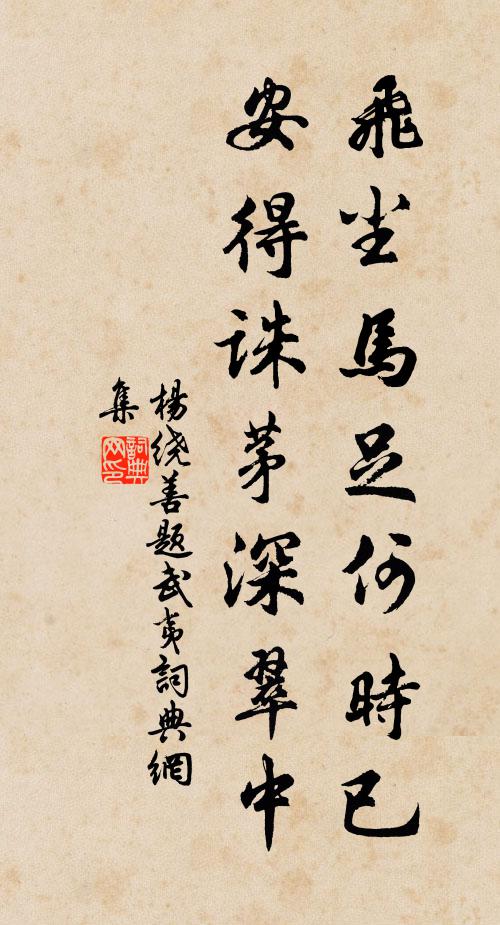 飛尘馬足何時已
安得誅茅深翠中
楊绕善题武夷詞典網
集
詞典
网印